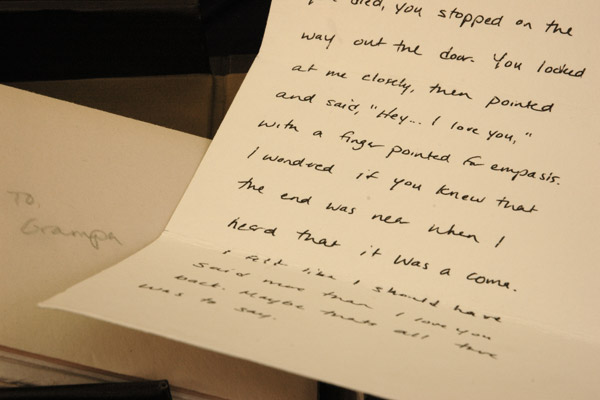 died, you stopped on the
way out the door. You looked
at me closely, then pointed
and said, "Hey... I love you,"
with a finger pointed for empasis.
I wondred if you knew that
the end was near when I
heard that it was a coma.
I felt like I should have
said more than I love you
back. Maybe thats all there
was to say.
To,
Grampa